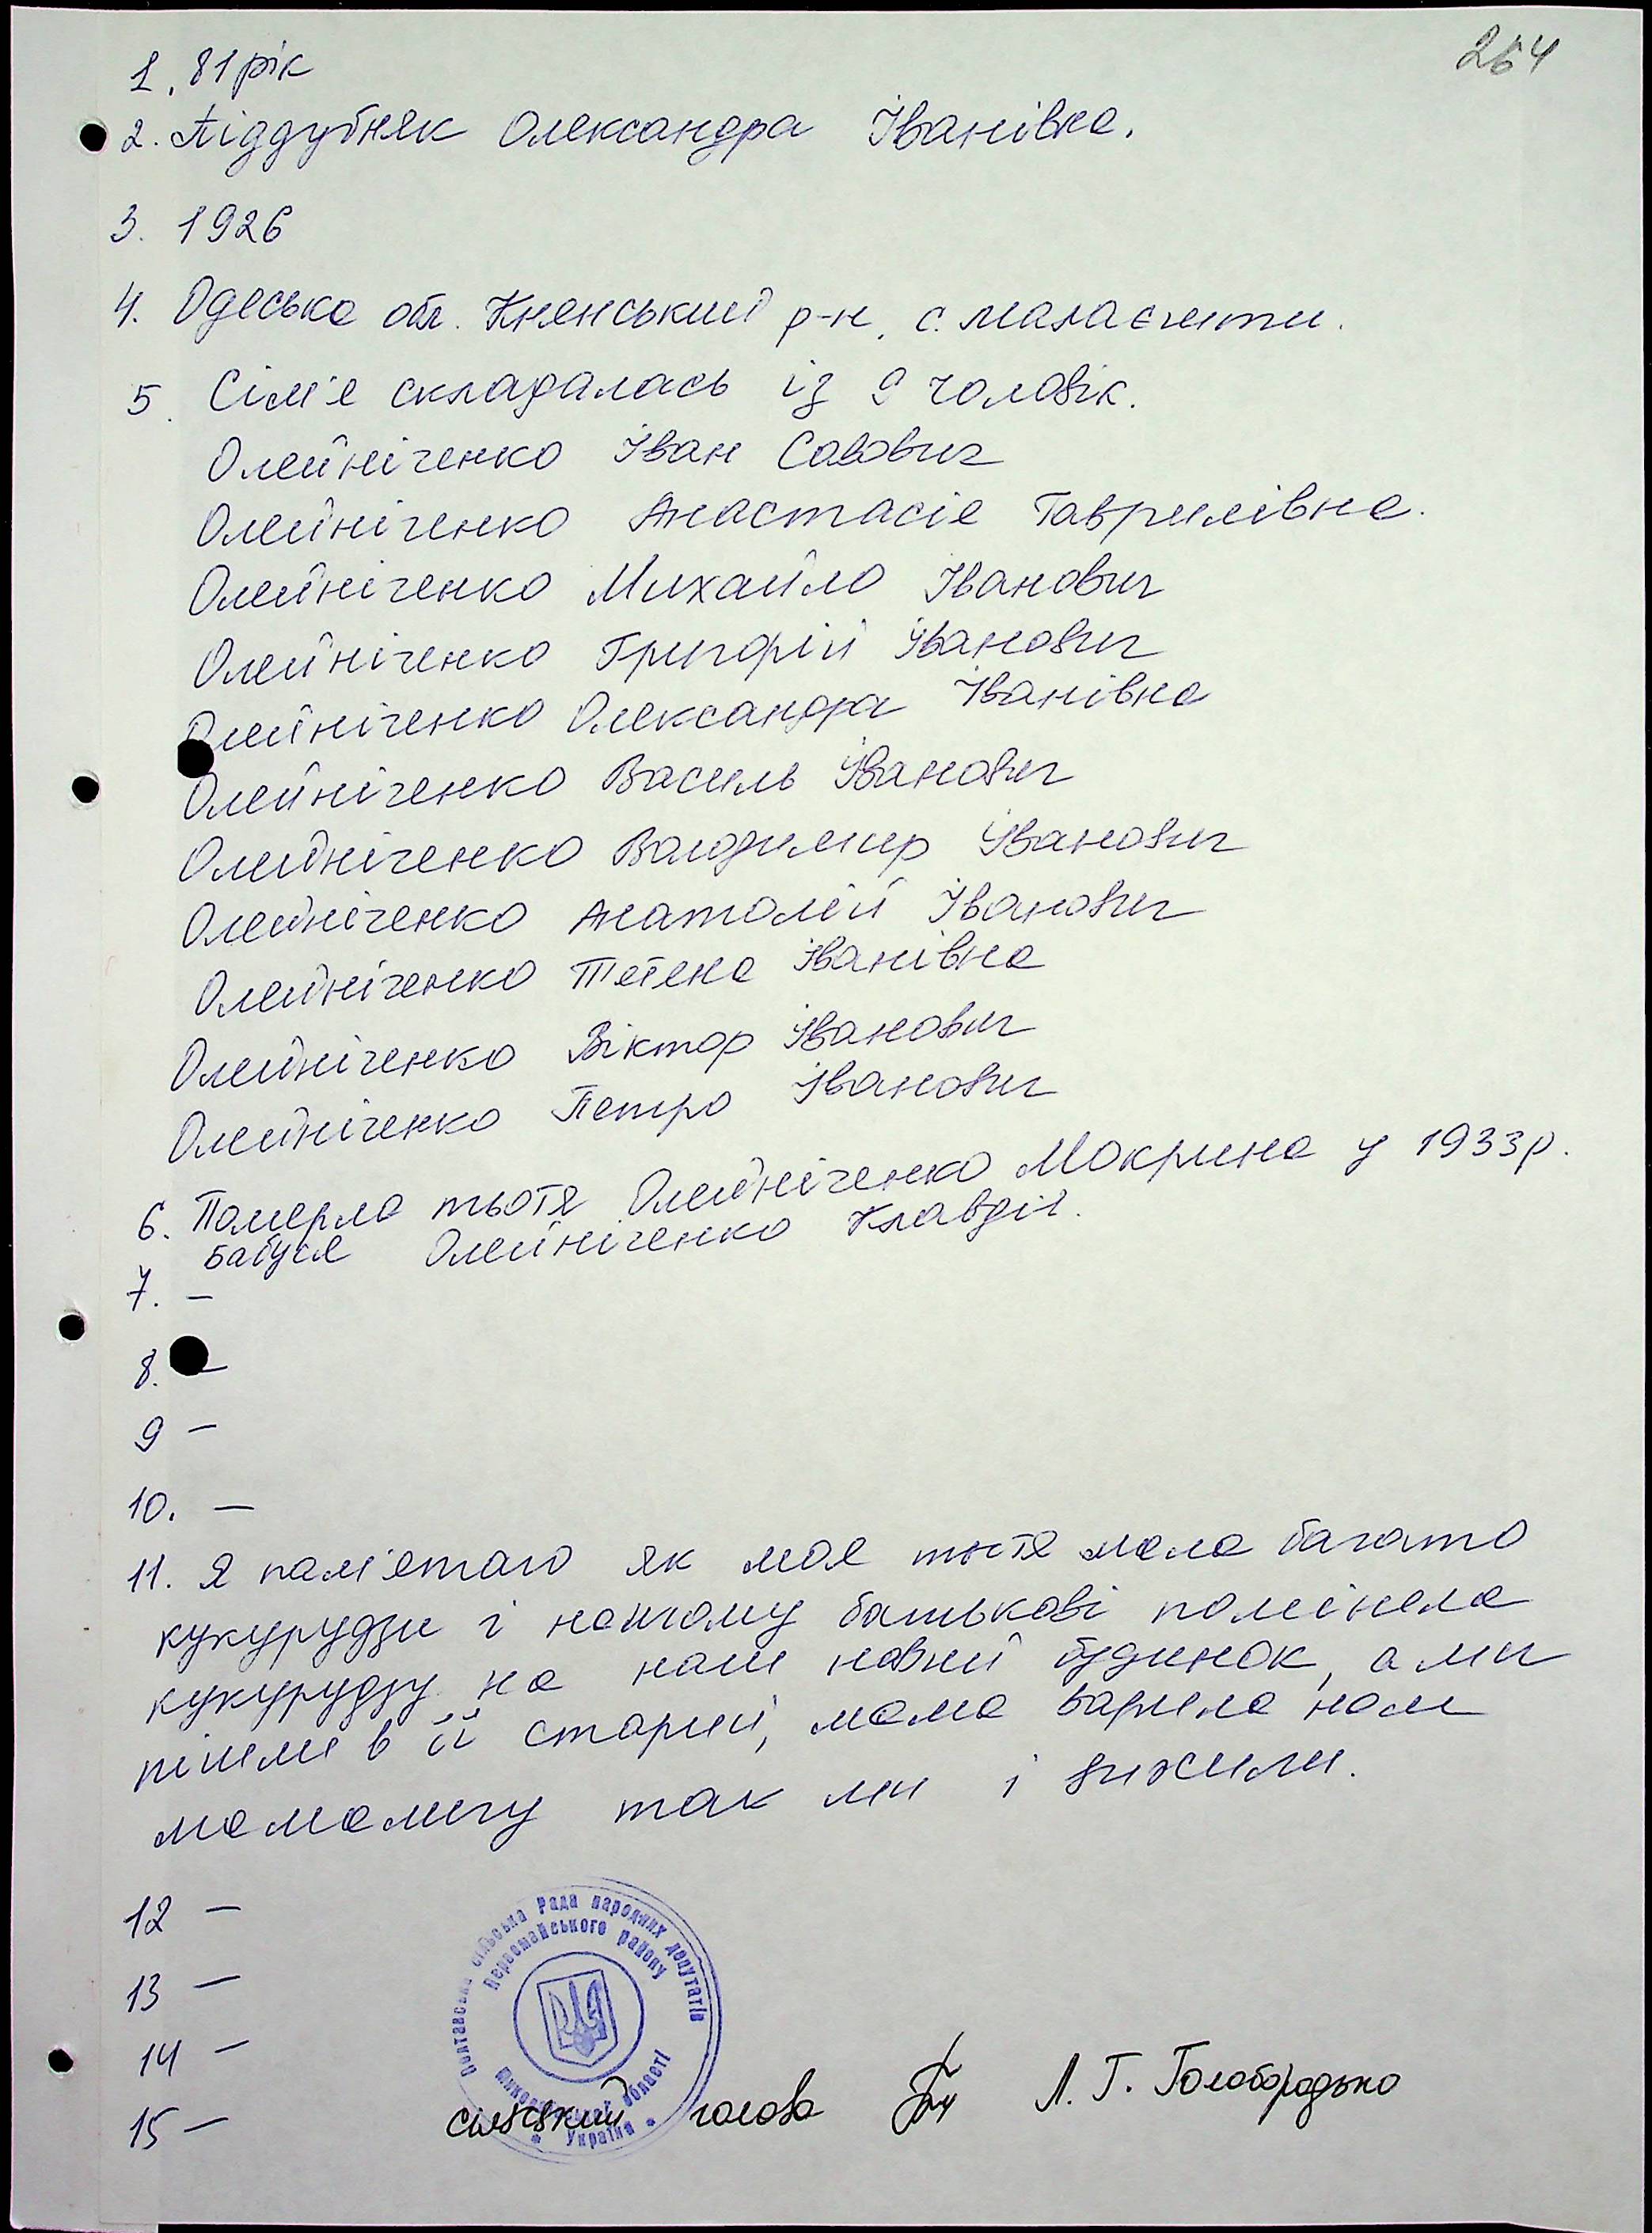 264
1. 81 рік
2. Піддубняк Олександра Іванівна.
3. 1926
4. Одеська обл. р-н, с.
5. Сім'я складалась із 9 чоловік.
Олейніченко Іван Савович
Олейніченко Анастасія Гаврилівна.
Олейніченко Михайло Іванович
Олейніченко Григорій Іванович
Олейніченко Олександра Іванівна
Олейніченко Василь Іванович
Олейніченко Володимир Іванович
Олейніченко Анатолій Іванович
Олейніченко Тетяна Іванівна
Олейніченко Віктор Іванович
Олейніченко Петро Іванович
6. Померла тьотя Олейніченко Мокрина у 1933р.
бабуся Олейніченко Клавдія.
7. –
8. –
9 –
10. –
11. Я пам'ятаю як моя тьотя мала багато
кукурудзи і нашому батькові поміняла
кукурудзу на наш новий будинок, а ми
пішли в її старий, мама варила нам
мамалигу так ми і вижили.
12 –
13 –
14 –
15 –
Полтавська сільська Рада народних депутатів
Первомайського району
Миколаївської області
* Україна *
сільський голова Л. Г. Голобородько